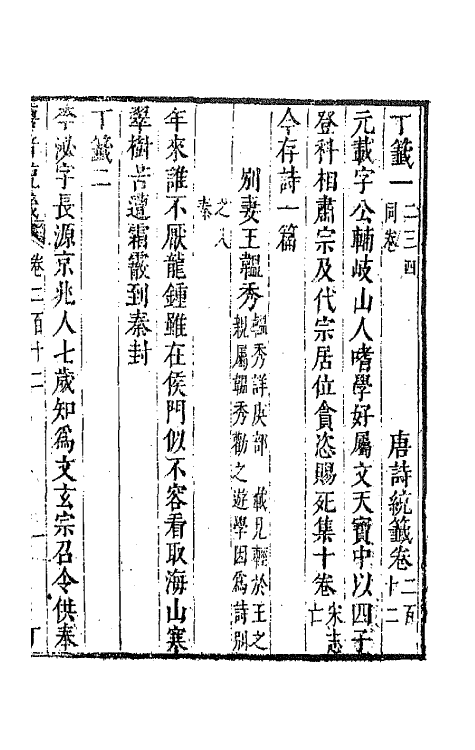 丁籤一 二三四同卷 唐詩統籤卷二百十二
元載字公輔岐山人嗜學好屬文天寶中以四子
登科相肅宗及代宗居位貪恣賜死集十卷宋志亡
今存詩一篇
別妻王韞秀 韞秀詳庚部 載見輕於王之親屬韞秀勸之遊學因爲詩別之入秦
年來誰不厭龍鍾雖在侯門似不容看取海山寒
翠樹苦遭霜霰到秦封
丁籤二
李泌字長源京兆人七歲知爲文玄宗召令供奉
卷二百十二